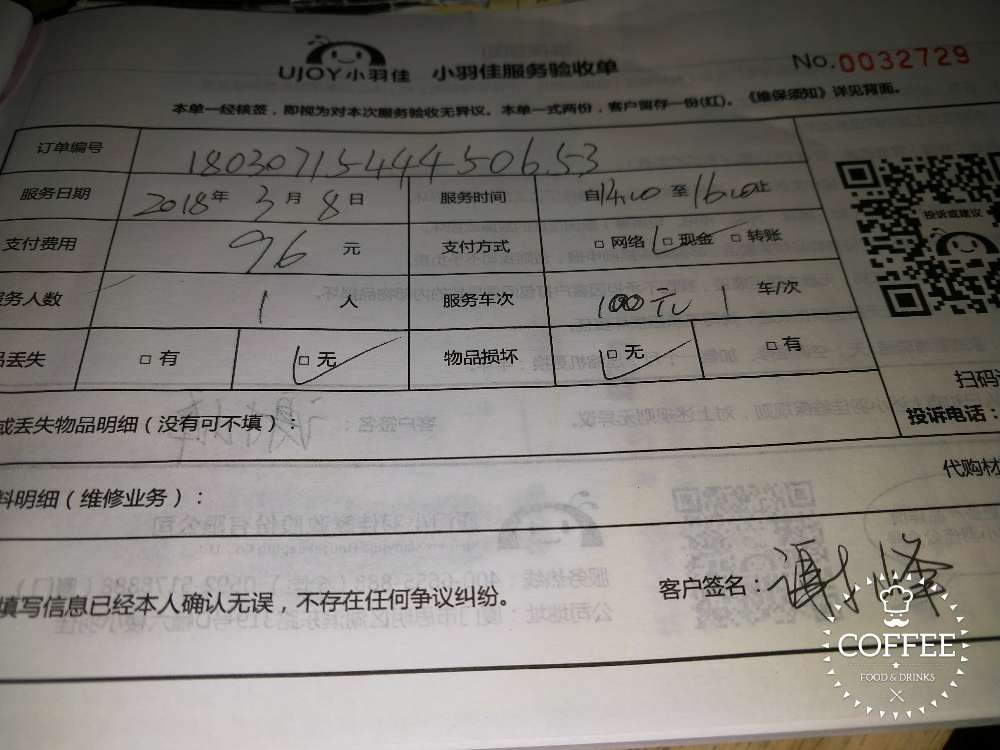 UJOY小羽佳 小羽佳服务验收单 No.0032729
本单一经核签，即视为对本次服务验收无异议。本单一式两份，客户留存一份(红)。《维保须知》详见背面。
订单编号 18030715444450653
服务日期 2018年 3月 8日 服务时间 自14:00至16:00止
支付费用 96 元 支付方式 □网络 □现金 □转账
务人数 1 人 服务车次 100元 1 车/次
丢失 □有 □无 物品损坏 □无 □有
投诉或建议
扫码
投诉电话：
或丢失物品明细（没有可不填）：
料明细（维修业务）： 代购材
填写信息已经本人确认无误，不存在任何争议纠纷。 客户签名：
COFFEE
FOOD & DRINKS